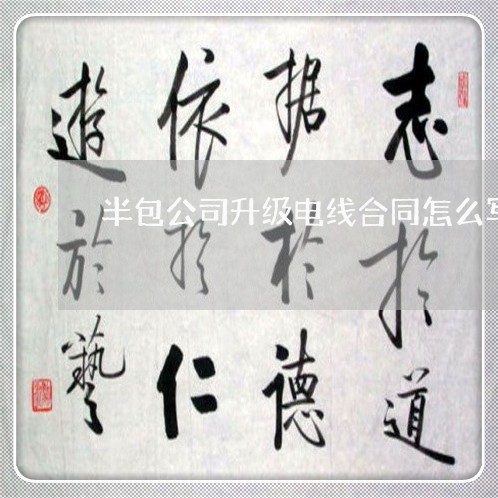 志於道
据於德
依於仁
遊於藝
半包公司升级电线合同怎么